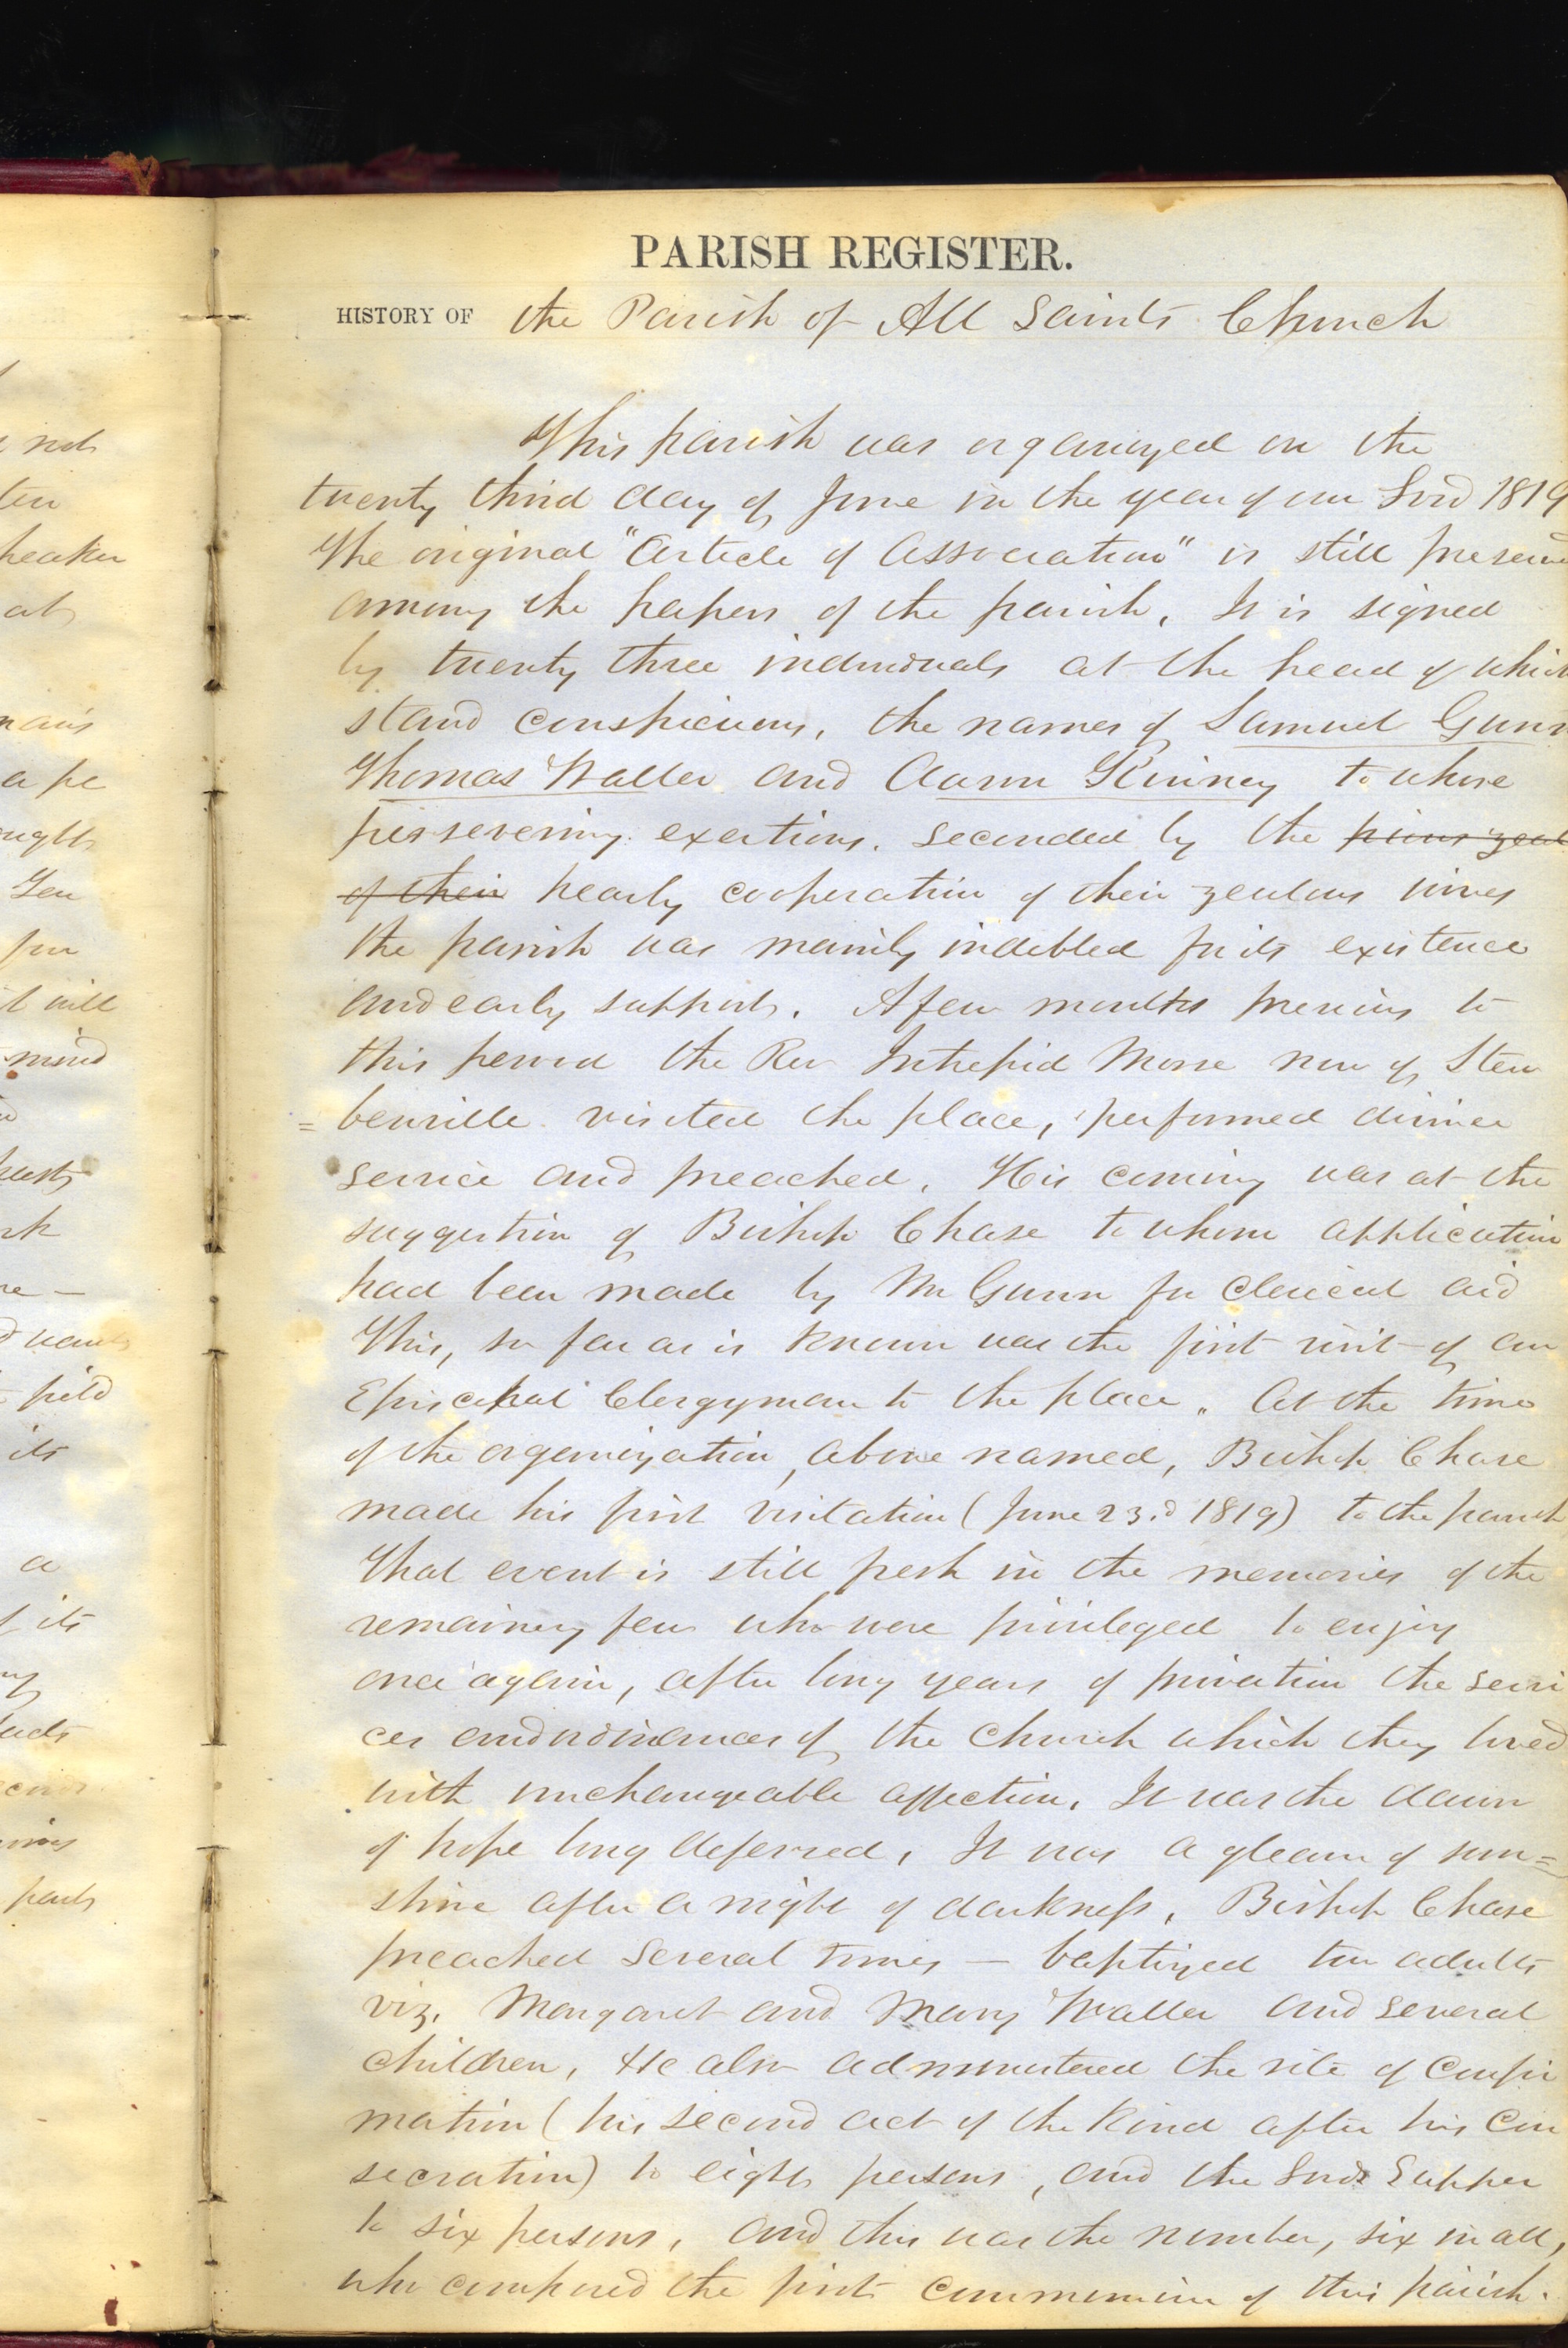 not
ten
heaker
at
mains
a pe
ought
Gen
for
t will
mind
rk
re —
field
its
a
f its
parts
PARISH REGISTER.
HISTORY OF the Parish of All Saints Church
This parish was organized on the
twenty third day of June in the year of our Lord 1819
The original "Article of Association" is still preserved
among the papers of the parish. It is signed
by twenty three individuals at the head of which
stand conspicuous, the names of Samuel Gunn
Thomas Waller and Aaron Kinney to whose
persevering exertions, seconded by the pious zeal
of their hearty cooperation of their zealous wives
the parish was mainly indebted for its existence
and early support. A few months previous to
this period the Rev Intrepid Morse now of Steu
= benville visited the place, performed divine
service and preached. His coming was at the
suggestion of Bishop Chase to whom application
had been made by Mr Gunn for clerical aid
This, so far as is known was the first visit of an
Episcopal Clergyman to the place. At the time
of the organization, above named, Bishop Chase
made his first visitation (June 23.d 1819) to the parish
That event is still fresh in the memories of the
remaining few who were privileged to enjoy
once again, after long years of privation the servi
ces and ordinances of the Church which they loved
with unchangeable affection. It was the dawn
of hope long deferred. It was a gleam of sun=
shine after a night of darkness. Bishop Chase
preached several times — baptized two adults
viz. Margaret and Mary Waller and several
children. He also administered the rite of Confir
mation (his second act of the kind after his Con
secration) to eight persons, and the Lords Supper
to six persons, and this was the number, six in all,
who composed the first communion of this parish.